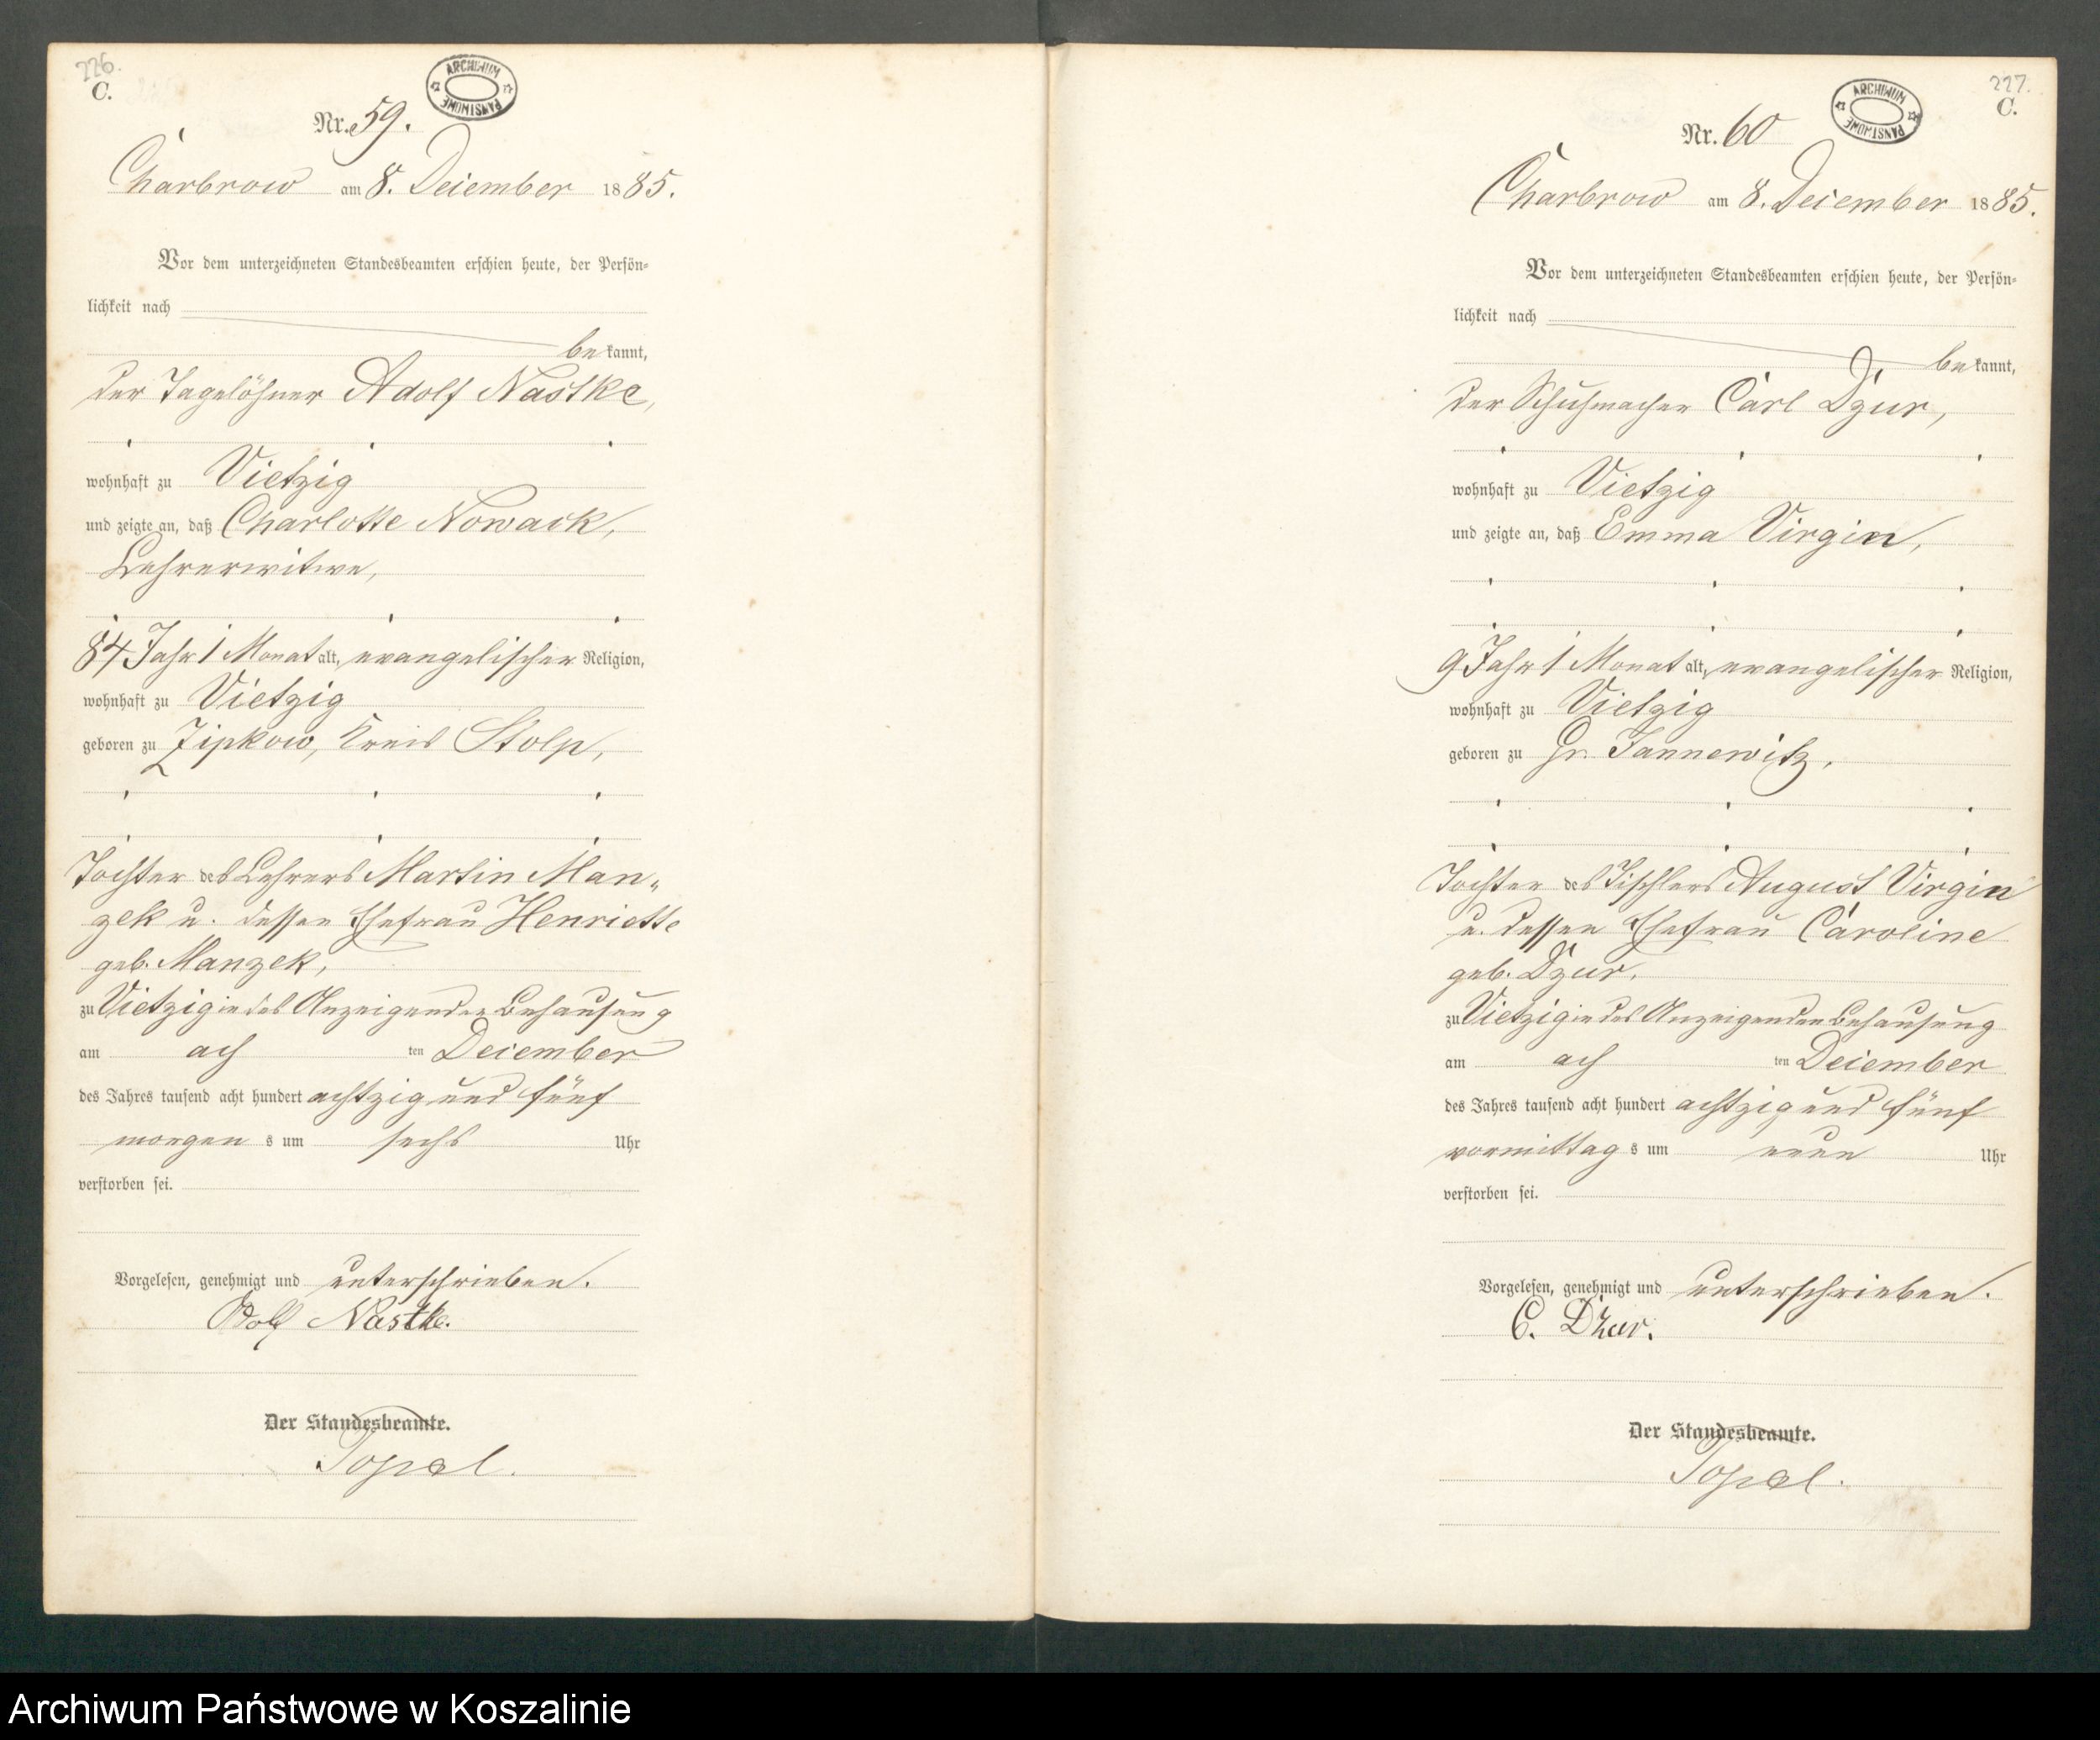 226.
C.
ARCHIWUM PAŃSTWOWE
Nr. 59.
Charbrow am 8. Dezember 1885.
Vor dem unterzeichneten Standesbeamten erschien heute, der Persön-
lichkeit nach
bekannt,
der Tagelöhner Adolf Nastke,
wohnhaft zu Vietzig
und zeigte an, daß Charlotte Nowack,
Lehrerwitwe,
84 Jahr 1 Monat alt, evangelischer Religion,
wohnhaft zu Vietzig
geboren zu Zipkow, Kreis Stolp,
Tochter des Lehrers Martin Man-
zek u. dessen Ehefrau Henriette
geb. Manzek,
zu Vietzig in des Anzeigenden Behausung
am ach ten Dezember
des Jahres tausend acht hundert achtzig und fünf
morgens um sechs Uhr
verstorben sei.
Vorgelesen, genehmigt und unterschrieben.
Adolf Nastke.
Der Standesbeamte.
Topel.
227.
C.
ARCHIWUM PAŃSTWOWE
Nr. 60
Charbrow am 8. Dezember 1885.
Vor dem unterzeichneten Standesbeamten erschien heute, der Persön-
lichkeit nach
bekannt,
der Schuhmacher Carl Dzur,
wohnhaft zu Vietzig
und zeigte an, daß Emma Virgin,
9 Jahr 1 Monat alt, evangelischer Religion,
wohnhaft zu Vietzig
geboren zu Gr. Jannewitz,
Tochter des Tischlers August Virgin
u. dessen Ehefrau Caroline
geb. Dzur,
zu Vietzig in des Anzeigenden Behausung
am ach ten Dezember
des Jahres tausend acht hundert achtzig und fünf
vormittags um neun Uhr
verstorben sei.
Vorgelesen, genehmigt und unterschrieben.
C. Dzur.
Der Standesbeamte.
Topel.
Archiwum Państwowe w Koszalinie